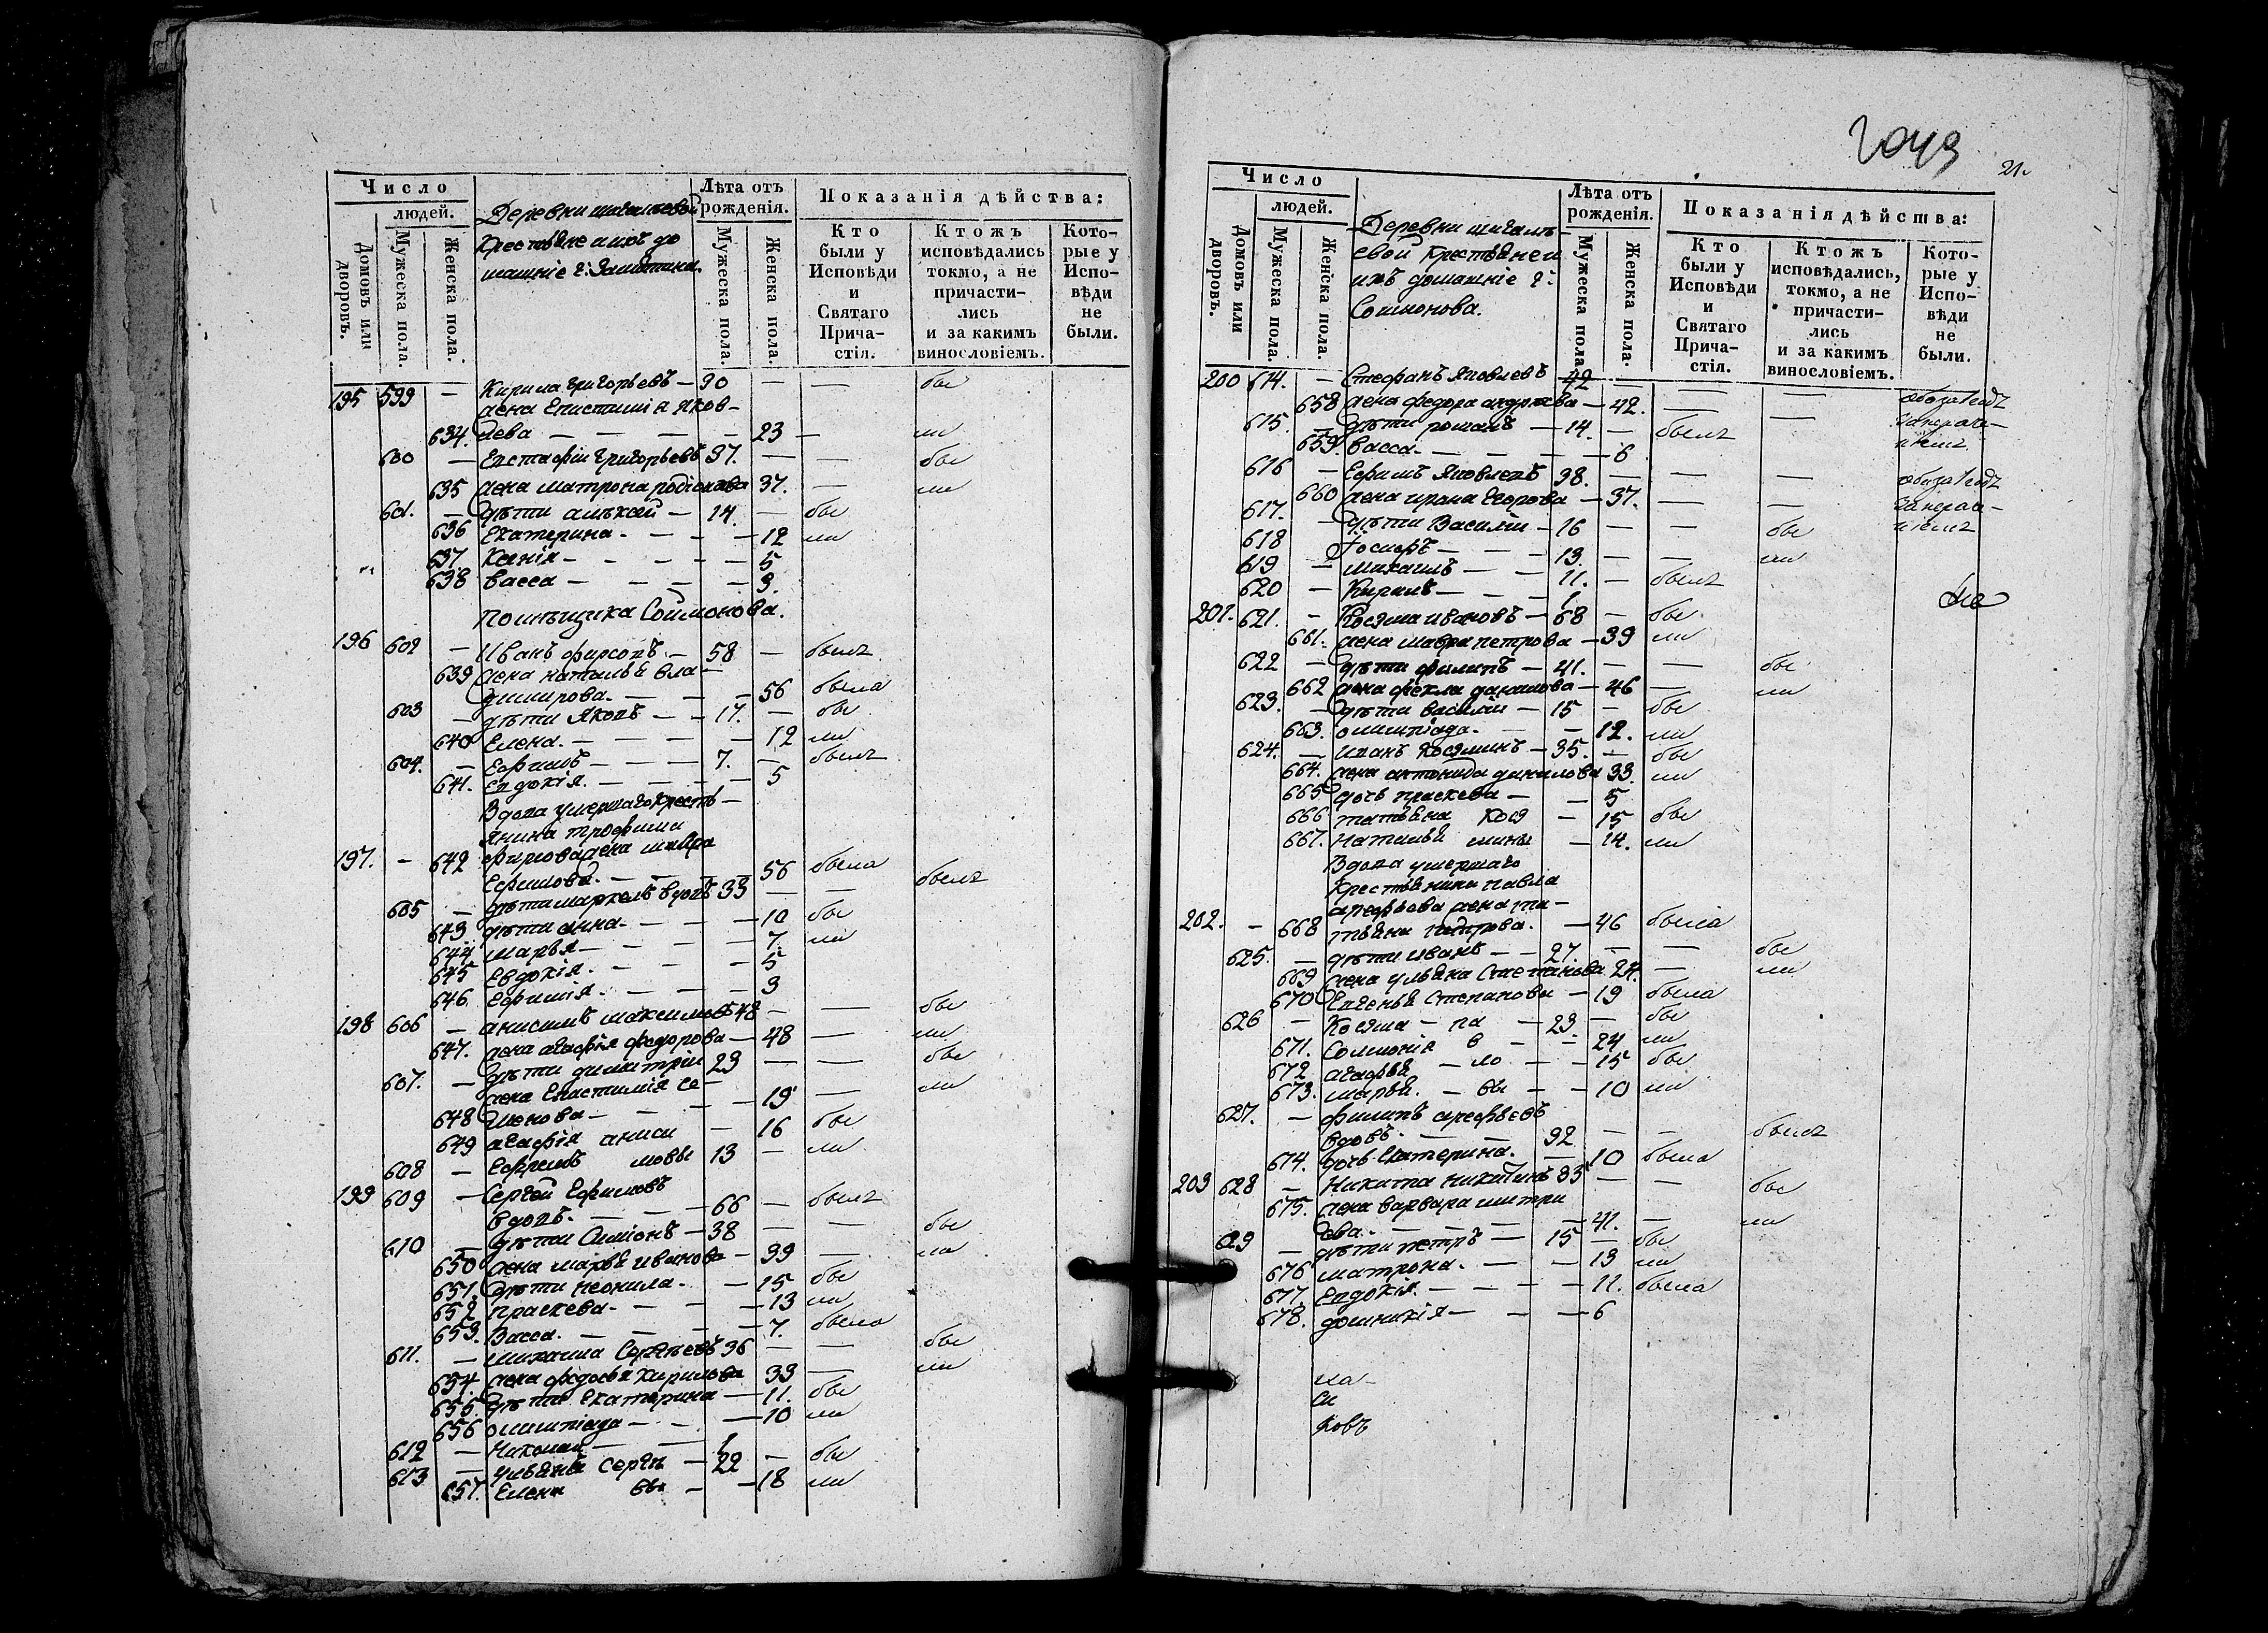 Число
людей.
Домовъ или дворовъ.
Мужеска пола.
Женска пола.
Деревни
Крестьяне и ихъ до
машніе г: Замятина.
Лѣта отъ рожденія.
Мужеска пола.
Женска пола.
Показанія дѣйства:
Кто были у Исповѣди и Святаго Прича- стія.
Ктожъ исповѣдались токмо, а не причасти- лись и за какимъ винословіемъ.
Кото- рые у Испо- вѣди не были.
195 599 — Кирила Григорьевъ — 30 — — бы
жена Епистимія Яков-
634. лева — — — 23 — ли
600 — Евстафіи Григорьевъ 37. — — бы
635 жена матрона родіонова 37. — ли
601. — дѣти алѣксѣй — 14. — бы
636 Екатерина. — — — 12 ли
637 Ксенія — — — — 5
638 васса — — — — 3.
помѣщика Соймонова.
196 602 — Иванъ фирсовъ — 58 — былъ
639 жена наталья вла —
димирова. — — — 56 была
603 — дѣти Яковъ — — 17. — бы
640 Елена. — — — — 12 ли
604. — Ефимъ — — — 7. — былъ
641. Евдокія. — — — — 5
Вдова умершаго кресть —
янина трофима
197. — 642 фирсова жена мавра
Ефимова. — — — 56 была
605 — дѣти маркелъ вдовъ 33 — — былъ
643 дѣти анна. — — — 10 бы
644 марья — — — — 7. ли
645 Евдокія. — — — 5
646. Ефимія. — — — 3
198 606 — анисимъ максимовъ 48 — — бы
647. жена агафія федорова — 48 — ли
607. — дѣти димитріи 23 — — бы
жена Епистимія се —
648 менова — — — 19 — ли
649 агафія аниси — 16 бы
608 — Ефремъ мовы 13 — ли
199 609 — Сергѣй Ефимовъ
вдовъ. — — — 66 — былъ
610 — дѣти Симіонъ — 38 — — бы
650 жена марья Иванова — 39 — ли
651. дѣти неонила. — 15 бы
652 праскева. — — — 13 ли
653. Васса. — — — — 7. была
611. — михаила Сергѣевъ 36 — — бы
654. жена федосья Кирилова 33 — ли
655. дѣти Екатерина — 11. бы
656 олимпіада — — — 10 ли
612 — Николай — — — 1
613 — ульянъ Сергѣ — 22 — бы
657. Елена евы — — 18 ли
2049
21.
Число
людей.
Домовъ или дворовъ.
Мужеска пола.
Женска пола.
Деревни
евой Крестьяне и
ихъ домашніе г:
Соимонова.
Лѣта отъ рожденія.
Мужеска пола.
Женска пола.
Показанія дѣйства:
Кто были у Исповѣди и Святаго Прича- стія.
Ктожъ исповѣдались, токмо, а не причасти- лись и за какимъ винословіемъ.
Кото- рые у Испо- вѣди не были.
200 614. — Стефанъ Яковлевъ 42 — —
658 жена федора андреева — 42. — —
615. — дѣти романъ — 14. — былъ
659. васса — — — — 6
616 — Ефимъ Яковлевъ 38. — — —
660 жена ирина Егорова — 37. — —
617. — дѣти Василіи — 16 — — бы
618 — Iосифъ — — — 13. — — ли
619 — михаилъ — — 11. — былъ
620 — Кирилъ — — — 1
201. 621. — Козма ивановъ — 68 — бы
661. жена мавра петрова — 39 ли
622 — дѣти филипъ — 41. — — бы
662 жена фекла данилова — 46 — ли
623. — дѣти василіи — 15 — бы
663. олимпіада. — — 12. ли
624. — иванъ козминъ — 35. — бы
664. жена антонида данилова 33. ли
665 дочь праскева — — 5
666 татьяна Коз — 15 бы
667. Наталья мины — 14. ли
Вдова умершаго
Крестьянина павла
арефьева жена та —
202. — 668 тьяна — 46 была
625. — дѣти иванъ — — 27. — — бы
669 жена ульяна Степанова 24. — ли
670 Евгенья Степанова — 19 была
626 — Козма — па — 23 — бы
671. Соломонія в — — 24 ли
672 агафья — ло — — 15 бы
673. марья. — вы — — 10 ли
627. — филипъ арефьевъ
вдовъ. — — 32 — — былъ
674. дочь Екатерина. — 10 была
203 628 — Никита Никитинъ 35 — — бы
675. жена варвара митри
ева. — — — — 41. — ли
629 — дѣти петръ — 15 — бы
676 матрона. — — 13 ли
677. Евдокія. — — — 11. была
678. домникія — — — 6